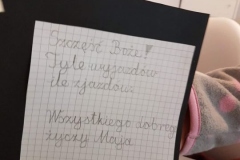 Szczęść Boże!
Tyle wyjazdów
ile zjazdów
Wszystkiego dobrego
życzy Maja